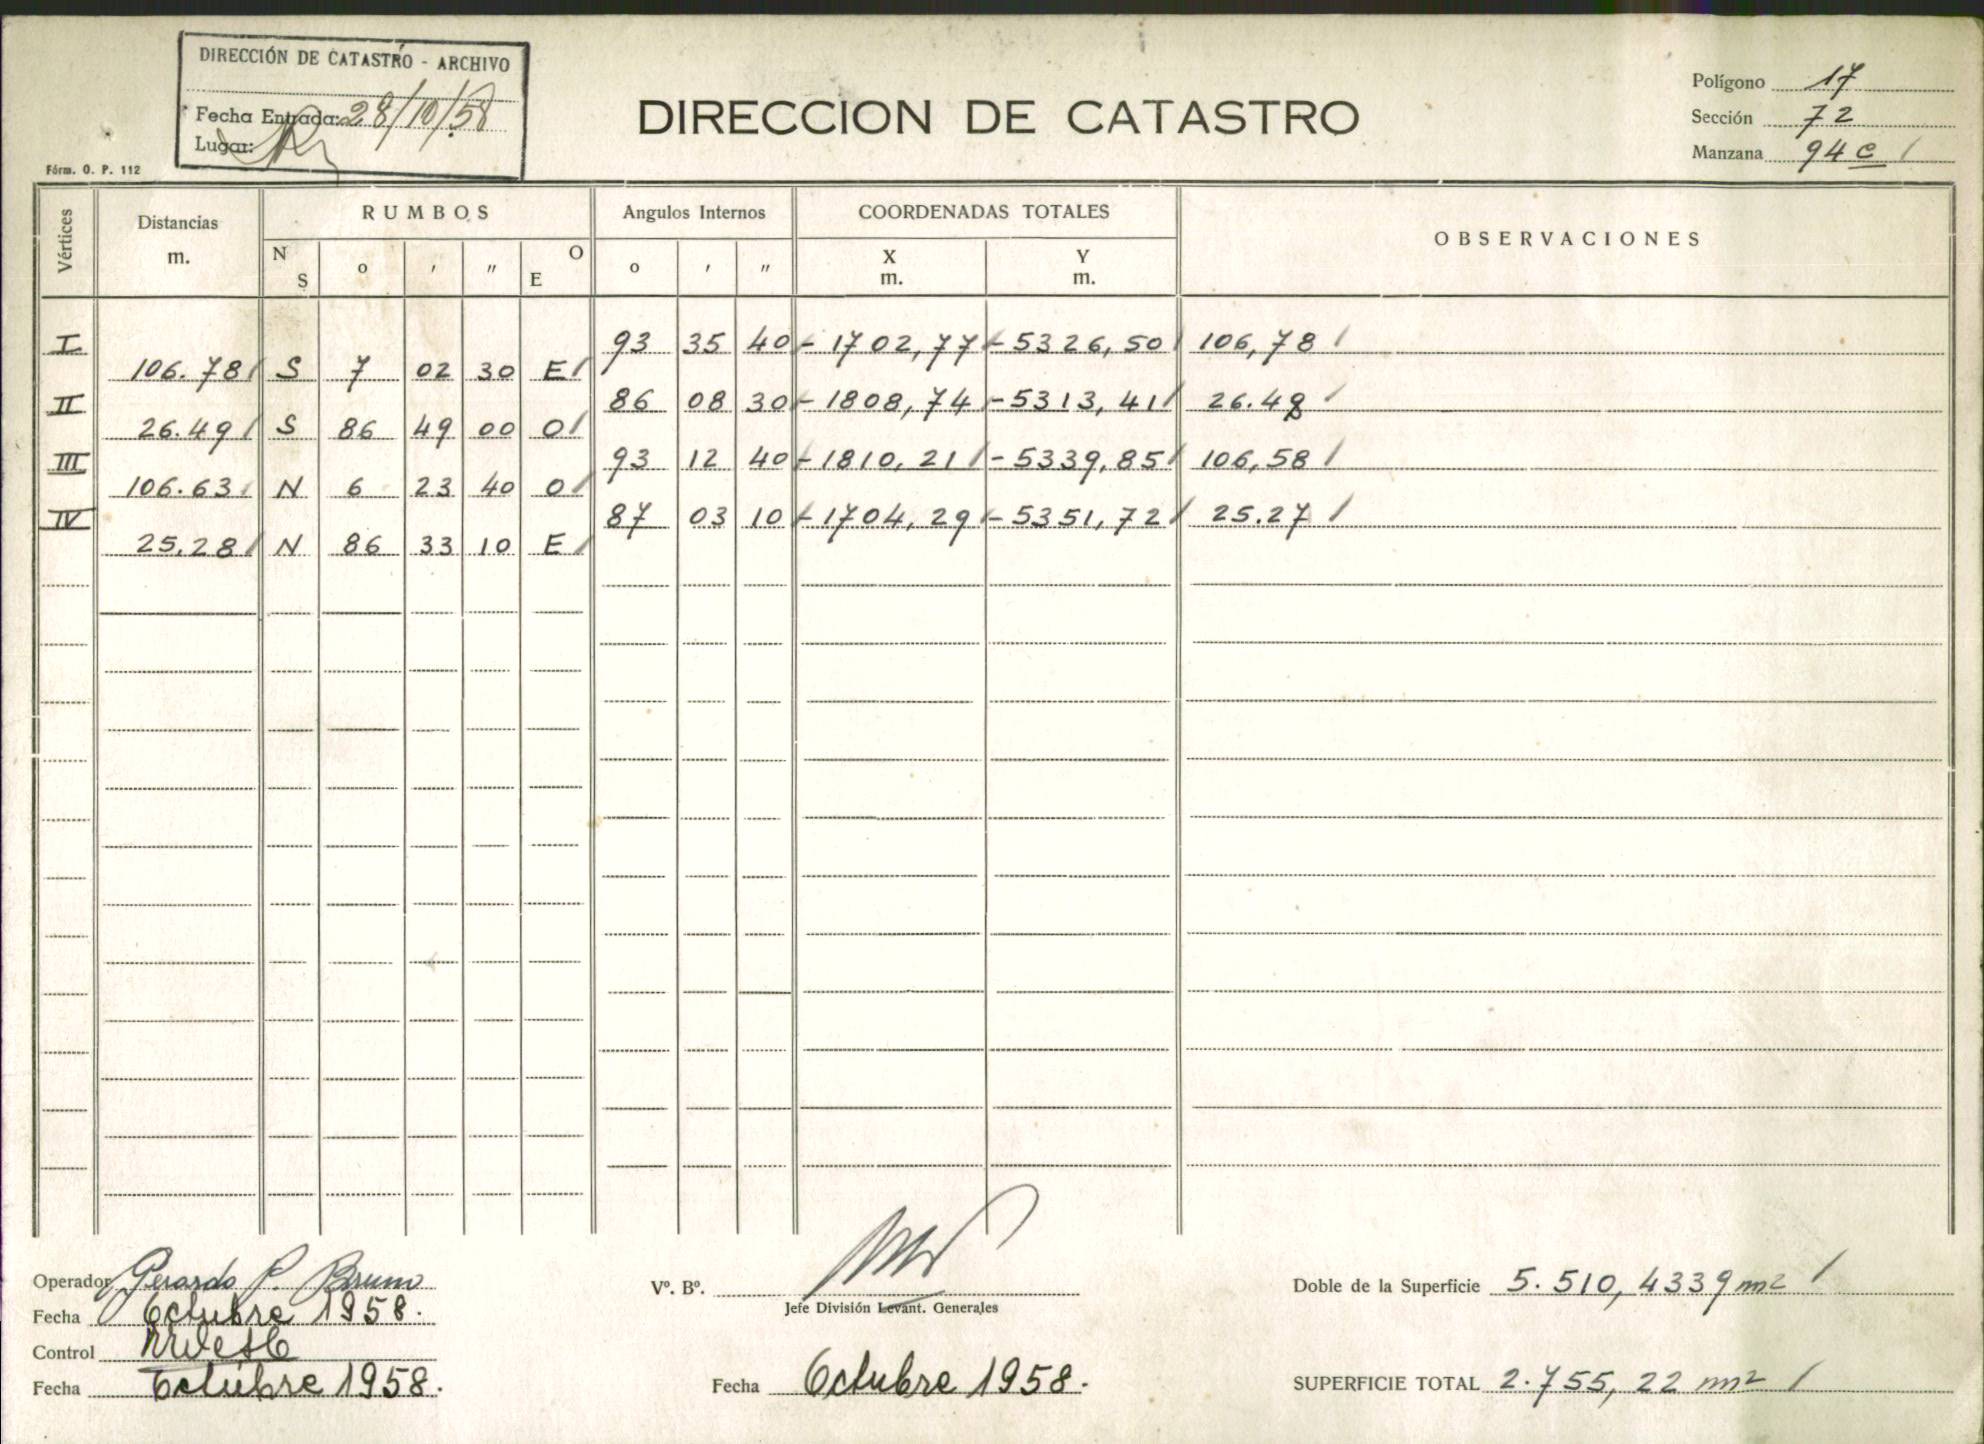 DIRECCIÓN DE CATASTRO - ARCHIVO
Fecha Entrada: 28/10/58
Lugar:
Fórm. O. P. 112
DIRECCION DE CATASTRO
Polígono 17
Sección 72
Manzana 94 c /
Vértices Distancias m. RUMBOS Angulos Internos COORDENADAS TOTALES OBSERVACIONES
N S o ' " O E o ' " X m. Y m.
I 93 35 40 - 1702,77 - 5326,50 / 106,78 /
106.78 / S 7 02 30 E /
II 86 08 30 - 1808,74 - 5313,41 / 26.48 /
26.49 / S 86 49 00 O /
III 93 12 40 - 1810,21 / - 5339,85 / 106,58 /
106.63 / N 6 23 40 O /
IV 87 03 10 - 1704,29 - 5351,72 / 25.27 /
25.28 / N 86 33 10 E /
Operador Gerardo P. Bruno
Fecha Octubre 1958.
Control
Fecha Octubre 1958.
Vº. Bº.
Jefe División Levant. Generales
Fecha Octubre 1958.
Doble de la Superficie 5.510,4339 m2 /
SUPERFICIE TOTAL 2.755,22 m2 /